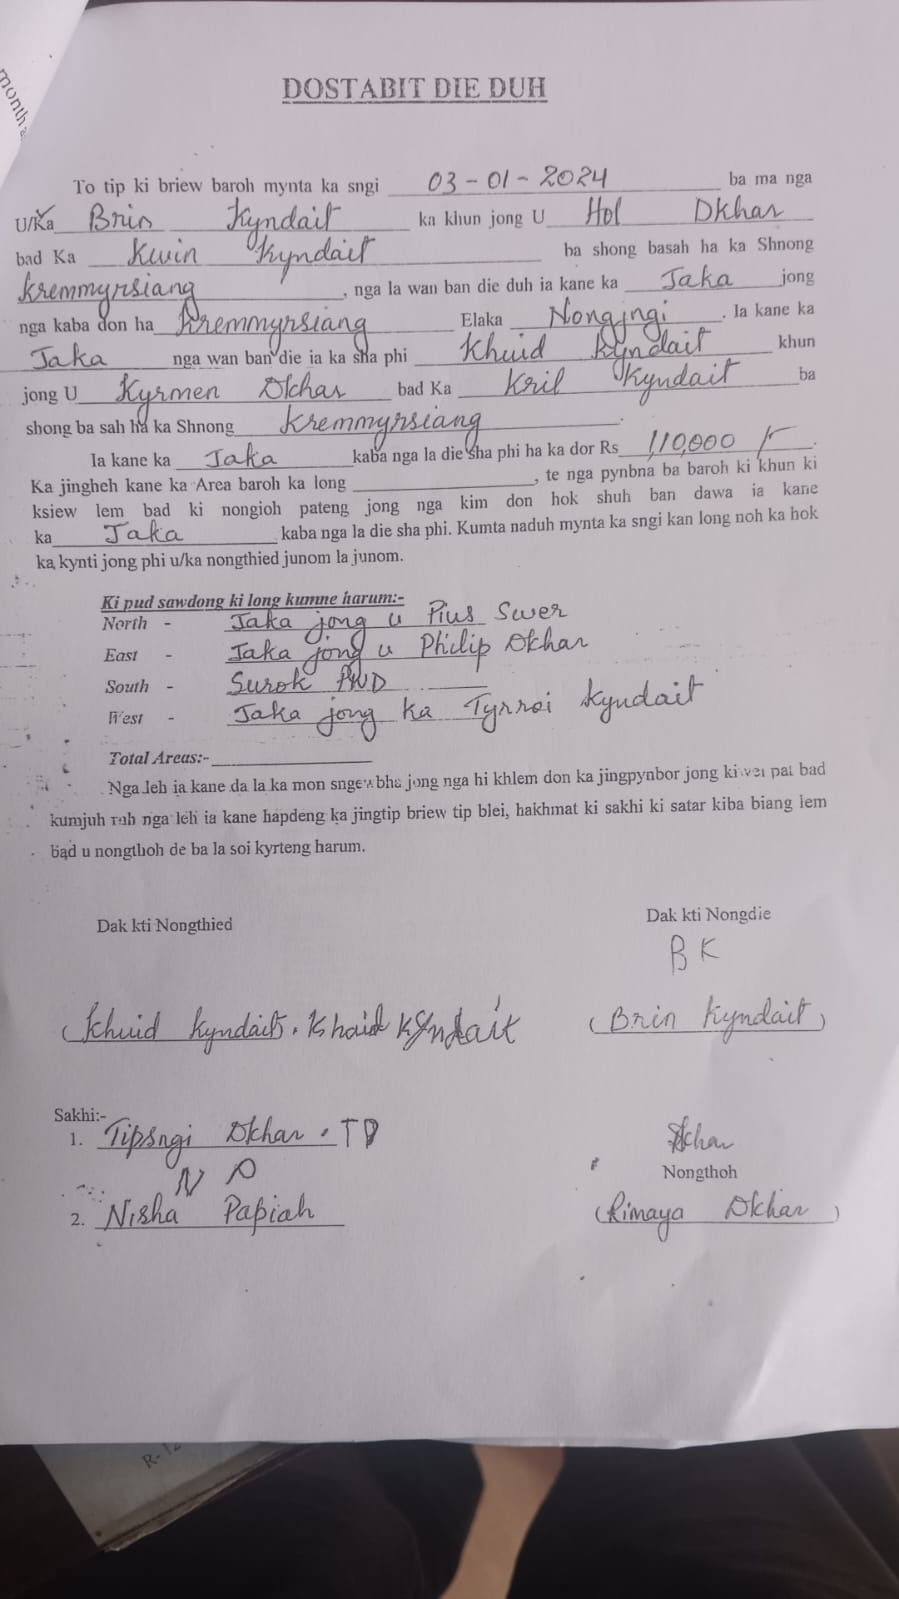 month
DOSTABIT DIE DUH
To tip ki briew baroh mynta ka sngi 03-01-2024 ba ma nga
U/Ka Brin Kyndait ka khun jong U Hol Dkhar
bad Ka Kwin Kyndait ba shong basah ha ka Shnong
Kremmyrsiang, nga la wan ban die duh ia kane ka Jaka jong
nga kaba don ha Kremmyrsiang Elaka Nongjngi. Ia kane ka
Jaka nga wan ban die ia ka sha phi Khuid Kyndait khun
jong U Kyrmen Dkhar bad Ka Kril Kyndait ba
shong ba sah ha ka Shnong Kremmyrsiang.
Ia kane ka Jaka kaba nga la die sha phi ha ka dor Rs 1,10,000/-.
Ka jingheh kane ka Area baroh ka long , te nga pynbna ba baroh ki khun ki
ksiew lem bad ki nongioh pateng jong nga kim don hok shuh ban dawa ia kane
ka Jaka kaba nga la die sha phi. Kumta naduh mynta ka sngi kan long noh ka hok
ka kynti jong phi u/ka nongthied junom la junom.
Ki pud sawdong ki long kumne harum:-
North - Jaka jong u Pius Swer
East - Jaka jong u Philip Dkhar
South - Surok PWD
West - Jaka jong ka Tyrroi Kyndait
Total Areas:-
Nga leh ia kane da la ka mon sngewbha jong nga hi khlem don ka jingpynbor jong kiwei pat bad
kumjuh ruh nga leh ia kane hapdeng ka jingtip briew tip blei, hakhmat ki sakhi ki satar kiba biang lem
bad u nongthoh de ba la soi kyrteng harum.
Dak kti Nongthied Dak kti Nongdie
BK
(Khuid Kyndait. Khuid Kyndait (Brin Kyndait)
Sakhi:-
1. Tipsngi Dkhar. TD Dkhar
N P Nongthoh
2. Nisha Papiah (Rimaya Dkhar)